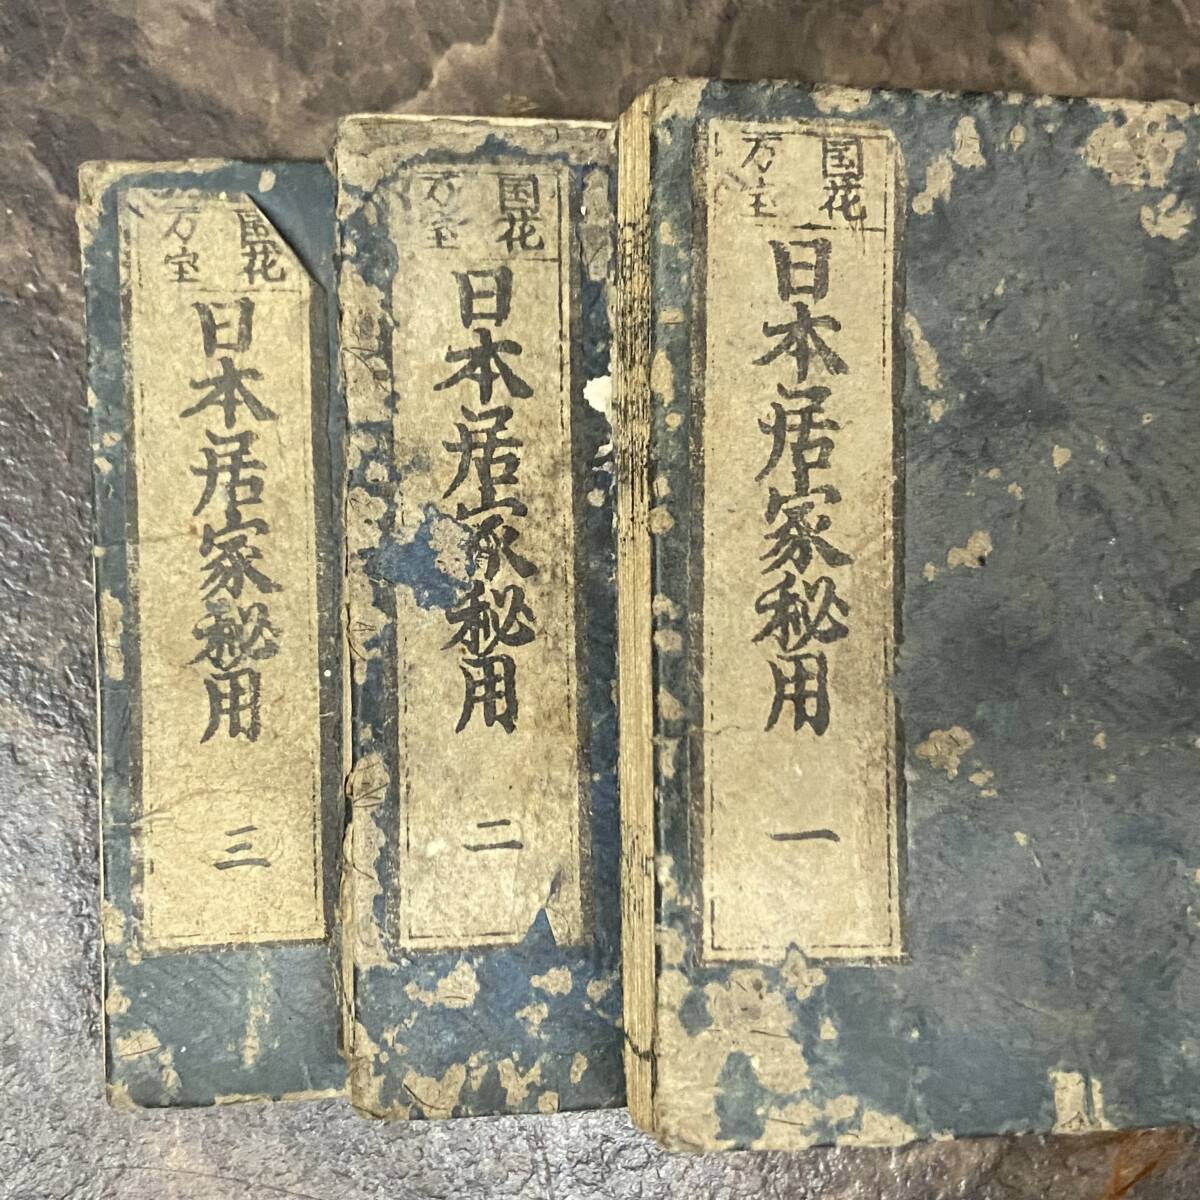 国花
万宝
日本居家秘用
一
国花
万宝
日本居家秘用
二
国花
万宝
日本居家秘用
三